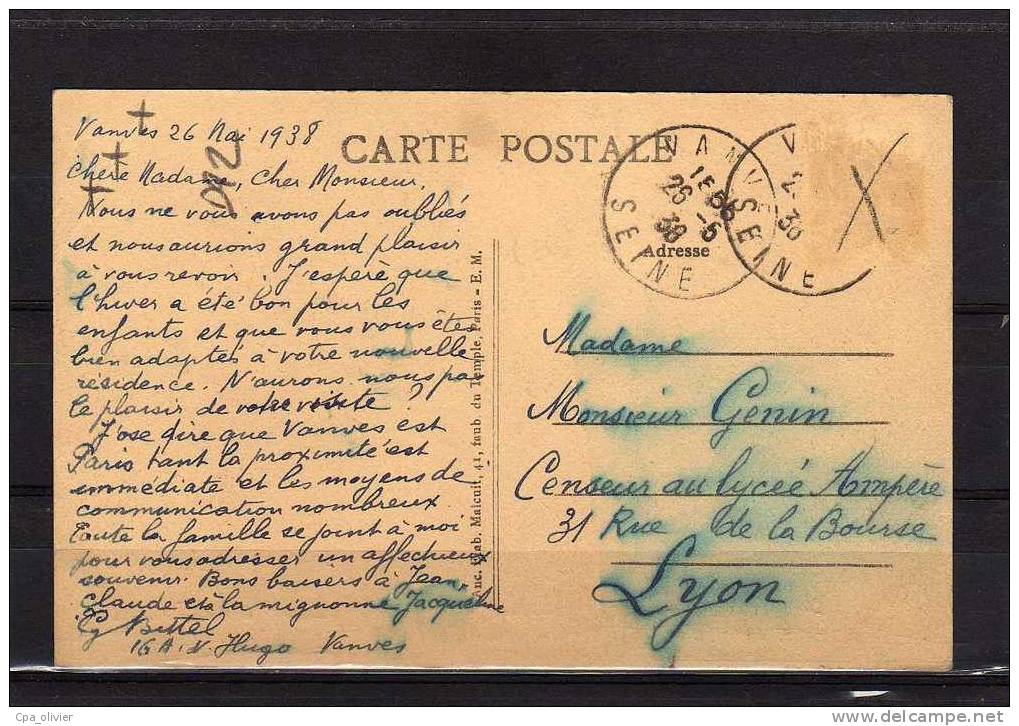 Vanves 26 Mai 1938
Chère Madame, Cher Monsieur,
Nous ne vous avons pas oubliés
et nous aurions grand plaisir
à vous revoir. J'espère que
l'hiver a été bon pour les
enfants et que vous vous êtes
bien adaptés à votre nouvelle
résidence. N'aurons nous pas
le plaisir de votre visite ?
J'ose dire que Vanves est
Paris tant la proximité est
immédiate et les moyens de
communication nombreux
Toute la famille se joint à moi
pour vous adresser un affectueux
souvenir. Bons baisers à Jean,
Claude et à la mignonne Jacqueline
Bettel
16 A. V. Hugo Vanves
CARTE POSTALE
Adresse
VANVES
26 -5
38
SEINE
V
38
SEINE
Malcuit, 41, faub. du Temple, Paris - E. M.
Madame
Monsieur Genin
Censeur au lycée Ampère
31 Rue de la Bourse
Lyon
Cpa_olivier
www.delcampe.net